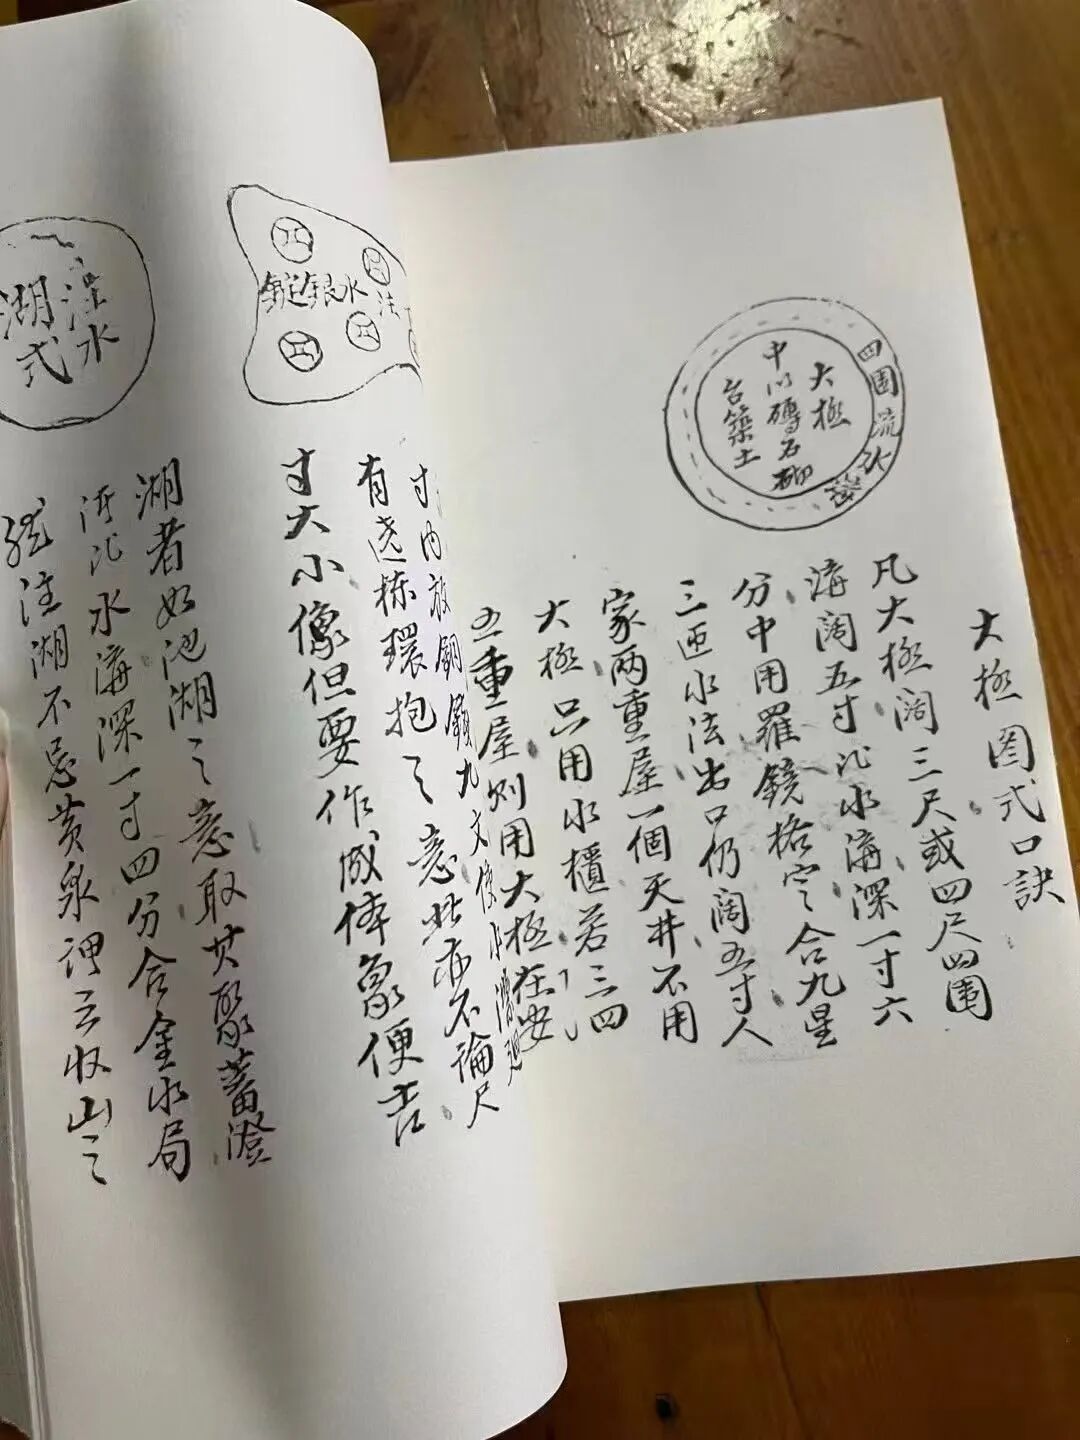 大極
中以磚石砌
台築土
四圍流水溝
大極图式口訣
凡大極闊三尺或四尺四围
溝闊五寸沉水溝深一寸六
分中用羅鏡格定合九星
三匝水法出口仍阔五寸人
家两重屋一個天井不用
大極只用水櫃若三四
五重屋则用大極在安
水注
銀錠
寸内放銅錢九文像水溝
有远栋環抱之意此亦不論尺
寸大小像但要作成体象便吉
注水
湖式
湖者如池湖之意取其聚蓄澄
沉水溝深一寸四分合金水局
注湖不忌黄泉谓云收山之